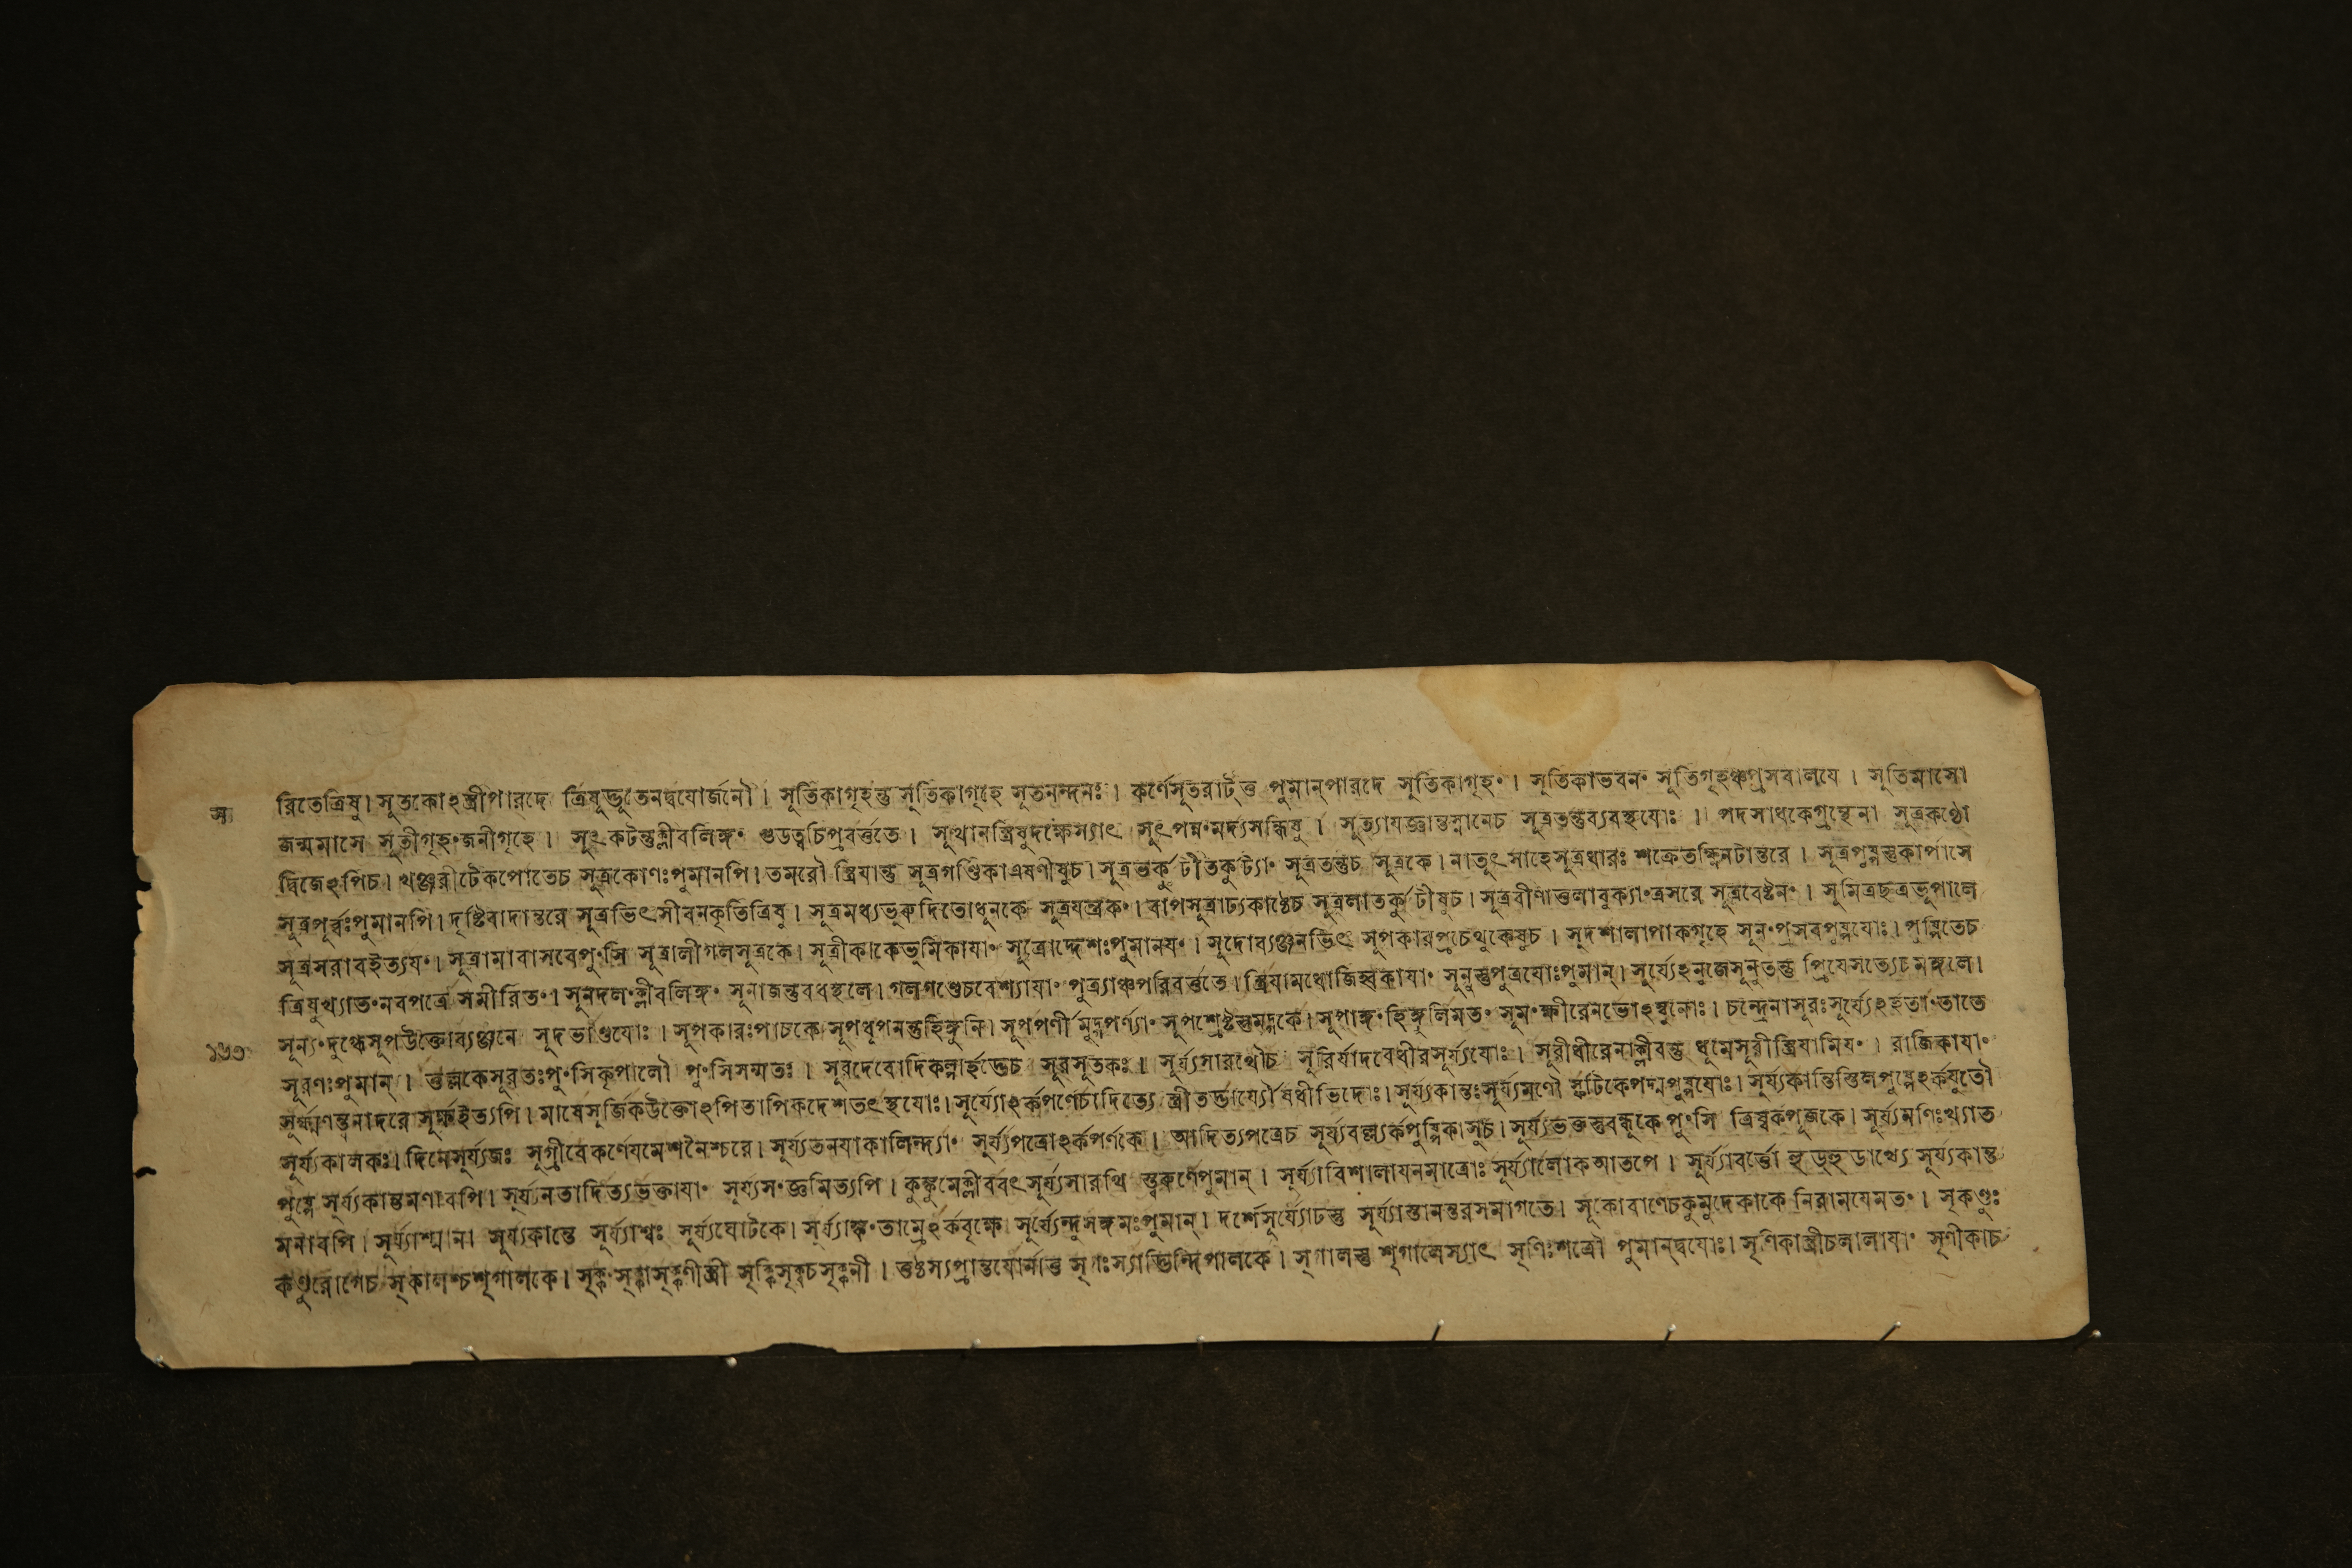 স
রিতেত্রিষু। সূতকোঽস্ত্রীপারদে ত্রিষূদ্ভূতেনদ্বযোর্জনৌ। সূতিকাগৃহন্তু সূতিকাগৃহে সূতনন্দনঃ। কর্ণেসূতরাট্ত্ত পুমান্পারদে সূতিকাগৃহং। সূতিকাভবনং সূতিগৃহঞ্চপ্রসবালযে। সূতিমাসো
জন্মমাসে সূতীগৃহং জনীগৃহে। সূৎকটন্তুক্লীবলিঙ্গং গুডত্বচিপ্রবর্ত্ততে। সূত্থানস্ত্রিষুদক্ষেস্যাৎ সূৎপন্নং মর্দ্যসন্ধিষু। সূত্যাযজ্ঞান্তস্নানেচ সূত্রতন্তুব্যবস্থযোঃ। পদসাধকেগ্রন্থেনা সূত্রকণ্ঠো
দ্বিজেঽপিচ। খঞ্জরীটেকপোতেচ সূত্রকোণঃপুমানপি। তমরৌ স্ত্রিযান্তু সূত্রগণ্ডিকাএষণীষুচ। সূত্রতর্কুটীতকুট্যাং সূত্রতন্তুচ সূত্রকে। নাতূৎসাহেসূত্রধারঃ শক্রেতক্ষ্ণিনটান্তরে। সূত্রপুষ্পস্তুকার্পাসে
সূত্রপূর্ব্বঃপুমানপি। দৃষ্টিবাদান্তরে সূত্রভিৎসীবনকৃতিত্রিষু। সূত্রমধ্যভুকদিতোধূনকে সূত্রযন্ত্রকং। বাপসূত্রাঢ্যকাষ্ঠেচ সূত্রলাতর্কুটীষুচ। সূত্রবীণাত্তলাবুক্যাং ত্রসরে সূত্রবেষ্টনং। সুমিত্রছত্রভূপালে
সূত্রসরাবইত্যযং। সূত্রামাবাসবেপুংসি সূত্রালীগলসূত্রকে। সূত্রীকাকেভূমিকাযাং সূত্রোদ্দেশঃপুমানযং। সূদোব্যঞ্জনভিৎ সূপকারপ্রচেথুকেষুচ। সূদশালাপাকগৃহে সূনং প্রসবপুষ্পযোঃ। পুষ্পিতেচ
ত্রিষুখ্যাতং নবপত্রে সমীরিতং। সূনদলং ক্লীবলিঙ্গং সূনাজন্তুবধস্থলে। গলগণ্ডেচবেশ্যাযাং পুত্র্যাঞ্চপরিবর্ত্ততে। স্ত্রিযামধোজিহ্বিকাযাং সূনুস্তুপুত্রযোঃপুমান্। সূর্য্যেঽনুজেসূনৃতন্তু প্রিযেসত্যেচমঙ্গলে।
সূন্যং দুগ্ধেসূপউক্তোব্যঞ্জনে সূদভাণ্ডযোঃ। সূপকারঃপাচকে সূপধূপনন্তুহিঙ্গুনি। সূপপর্ণী মুদ্গপর্ণ্যাং সূপশ্রেষ্ঠস্তুমুদ্গকে। সূপাঙ্গং হিঙ্গুলির্মতং সূমং ক্ষীরেনভোঽম্বুনোঃ। চন্দ্রেনাসূরঃসূর্য্যেঽর্হতাং তাতে
সূরণঃপুমান্। ত্তল্লকেসূরতঃপুংসিকৃপালৌ পুংসিসম্মতঃ। সূরদেবোদিকল্পার্হদ্ভেচ সূরসূতকঃ। সূর্য্যসারথৌচ সূরির্যাদবেধীরসূর্য্যযোঃ। সূরীধীরেনাক্লীবন্তু ধূমেসূরীস্ত্রিযামিযং। রাজিকাযাং
১৬৩
সূর্ক্ষণন্তুনাদরে সূর্ক্ষইত্যপি। মাষেসূর্জিকউক্তোঽপিতাপিকদেশতৎস্থযোঃ। সূর্য্যোঽর্ক্কপর্ণেচাদিত্যে স্ত্রীতদ্ভার্য্যৌষধীভিদোঃ। সূর্য্যকান্তঃসূর্য্যমণৌ স্ফটিকেপদ্মপুষ্পযোঃ। সূর্য্যকান্তিস্তিলপুষ্পেঽর্কযুতৌ
সূর্য্যকালকঃ। দিনেসূর্য্যজঃ সুগ্রীবেকর্ণেযমেশনৈশ্চরে। সূর্য্যতনযাকালিন্দ্যাং সূর্য্যপত্রোঽর্কপর্ণকে। আদিত্যপত্রেচ সূর্য্যবল্ল্যর্কপুষ্পিকাসুচ। সূর্য্যভক্তস্তুবন্ধূকে পুংসি ত্রিষ্বর্কপূজকে। সূর্য্যমণিঃখ্যাত
পুষ্পে সূর্য্যকান্তমণাবপি। সূর্য্যনতাদিত্যভক্তাযাং সূর্য্যসংজ্ঞমিত্যপি। কুঙ্কুমেক্লীববৎ সূর্য্যসারথি স্ত্বরুণেপুমান্। সূর্য্যাবিশালাযনমাত্রোঃ সূর্য্যালোকআতপে। সূর্য্যাবর্ত্তো হুড্হুডাখ্যে সূর্য্যকান্ত
মনাবপি। সূর্য্যাশ্মান। সূর্য্যকান্তে সূর্য্যাশ্বঃ সূর্য্যঘোটকে। সূর্য্যাহ্বং তাম্রেঽর্কবৃক্ষে সূর্য্যেন্দুসঙ্গমঃপুমান্। দর্শেসূর্য্যোঢস্তু সূর্য্যাস্তানন্তরসমাগতে। সূকোবাণেচকুমুদেকাকে নিরাময়েমতং। সৃকণ্ডুঃ
কণ্ডুরোগেচ সৃকালশ্চশৃগালকে। সৃক্কং সৃক্কাসৃক্কণীস্ত্রী সৃক্কিসৃক্কচসৃক্কনী। ত্তষ্ঠস্যপ্রান্তযোর্নাত্ত সৃগঃস্যাদ্ভিন্দিপালকে। সৃগালস্তু শৃগালেস্যাৎ সৃণিঃশত্রৌ পুমান্দ্বযোঃ। সৃণিকাস্ত্রীচলালাযাং সৃণীকাচ